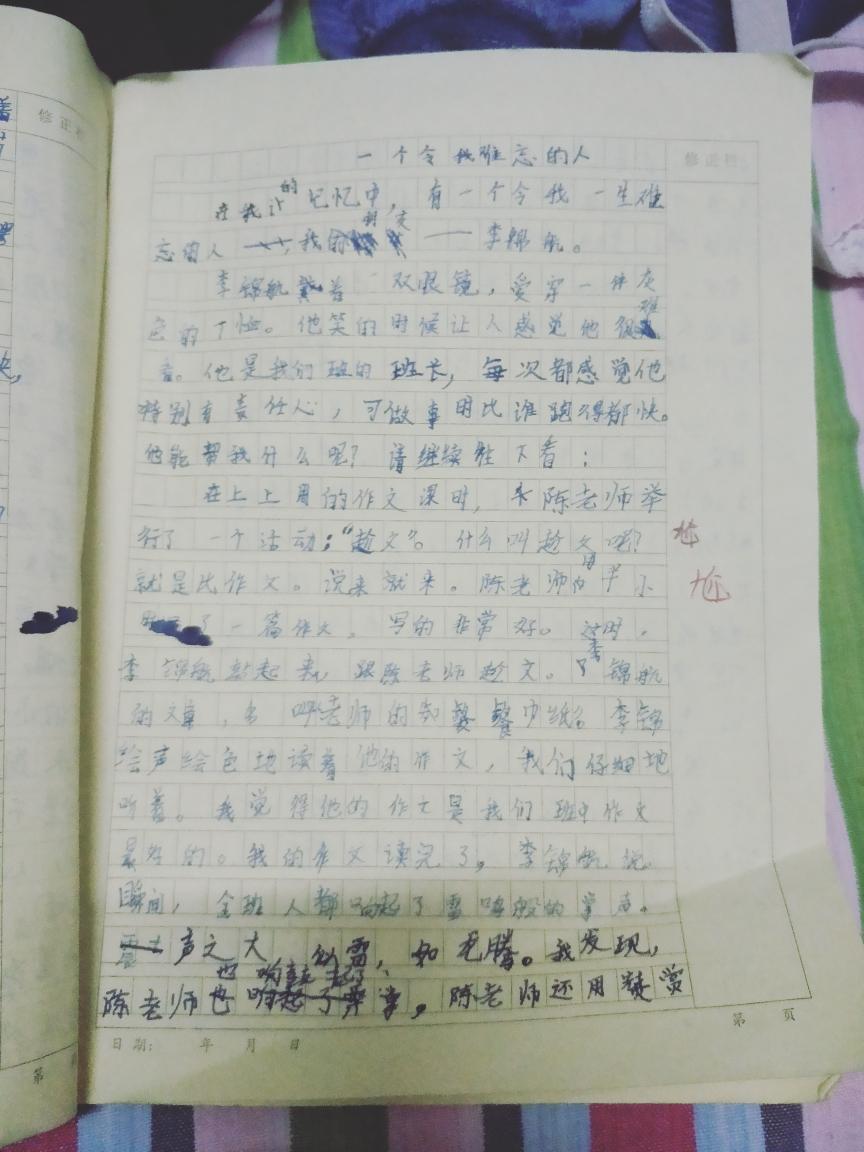 修正栏
修正栏
一个令我难忘的人
在我的记忆中，有一个令我一生难
忘的人，我的朋友——李锦航。
李锦航戴着双眼镜，爱穿一件灰
色的T恤。他笑的时候让人感觉他很难
看。他是我们班的班长，每次都感觉他
特别有责任心，可做事用比谁跑得都快。
他能帮我什么呢？请继续往下看：
在上上周的作文课时，陈老师举
行了一个活动："尬文"。什么叫尬文呢？
尬
就是比作文。说来就来。陈老师用半小
尬
了一篇作文，写的非常好。这时，
李锦航站起来，跟陈老师尬文。李锦航
的文章，名叫《老师的纸巾》。李锦
绘声绘色地读着他的作文，我们仔细地
听着。我觉得他的作文是我们班中作文
最好的。我的作文读完了，李锦航说
瞬间，全班人都响起了雷鸣般的掌声。
声之大，似雷，如龙腾。我发现，
陈老师也响起了掌，陈老师还用赞赏
日期：  年  月  日
第  页
第